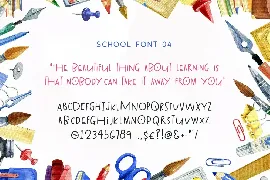 SCHOOL FONT 04
"THE BEAUTIFUL THING ABOUT LEARNING IS
THAT NOBODY CAN TAKE IT AWAY FROM YOU"
ABCDEFGHIJKLMNOPQRSTUVWXYZ
ABCDEFGHIJKLMNOPQRSTUVWXYZ
0123456789 .,$€?!@&+ "/